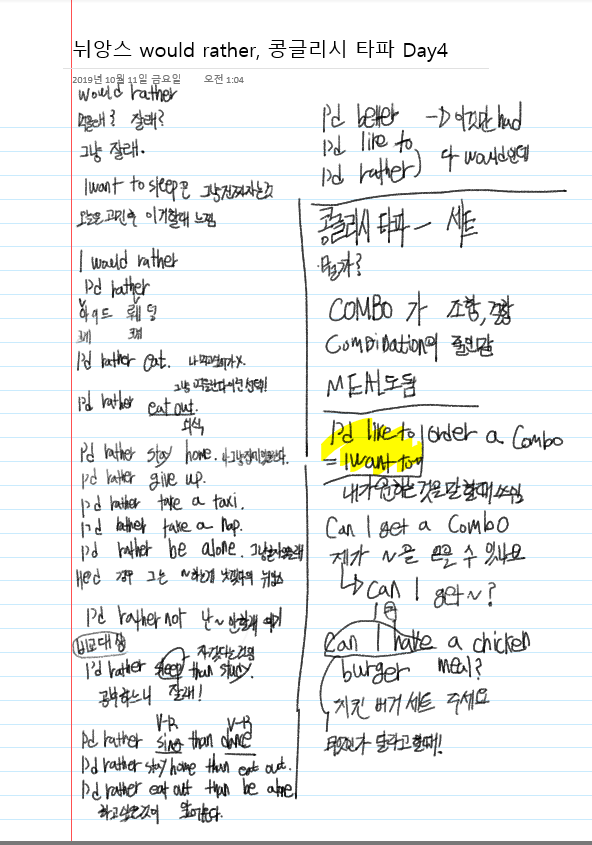 뉘앙스 would rather, 콩글리시 타파 Day4
2019년 10월 11일 금요일 오전 1:04
would rather
잘래?
그냥 잘래.
I want to sleep은
I would rather
I'd rather
I'd rather eat.
I'd rather eat out.
외식
I'd rather stay home.
I'd rather give up.
I'd rather take a taxi.
I'd rather take a nap.
I'd rather be alone.
He'd 경우 그는
I'd rather not 난 ~ 안할래
비교대상
I'd rather sleep than study.
공부하느니 잘래!
V-R V-R
I'd rather sing than dance
I'd rather stay home than eat out.
I'd rather eat out than be alone
I'd better → 이것만 had
I'd like to
I'd rather ) 다 would인데
콩글리시 타파 - 세트
뭘까?
COMBO 가 조합, 결합
Combination의 줄인말
MEAL도됨
I'd like to order a Combo
= I want to
내가 원하는 것을 말할때 쓰임
Can I get a COMBO
제가 ~을 얻을 수 있나요
↳ Can I get ~?
Can I have a chicken
burger meal?
치킨 버거 세트 주세요
무언가 달라고할때!